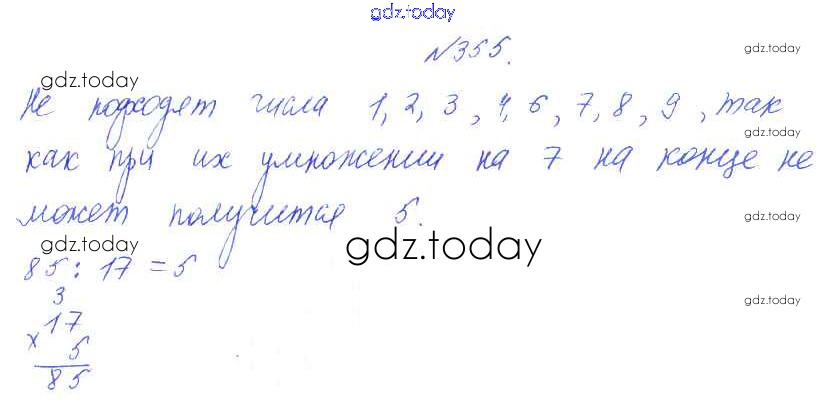 gdz.today
№355.
gdz.today
gdz.today
Не подходят числа 1, 2, 3, 4, 6, 7, 8, 9, так
gdz.today
как при их умножении на 7 на конце не
может получится 5.
gdz.today
gdz.today
gdz.today
85 : 17 = 5
3
17
× 5
85
gdz.today
gdz.today